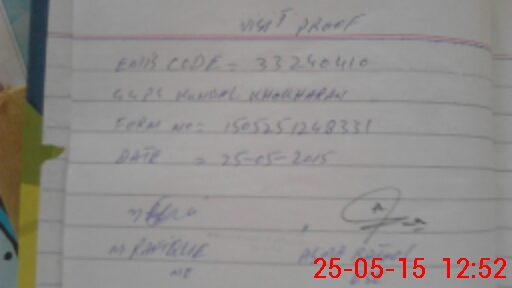 VISIT PROOF
EMIS CODE = 33240410
GGPS KUNDAL KHOKHARAN
FORM NO = 1505251248331
DATE = 25-05-2015
M RAFIQUE
ME
25-05-15 12:52